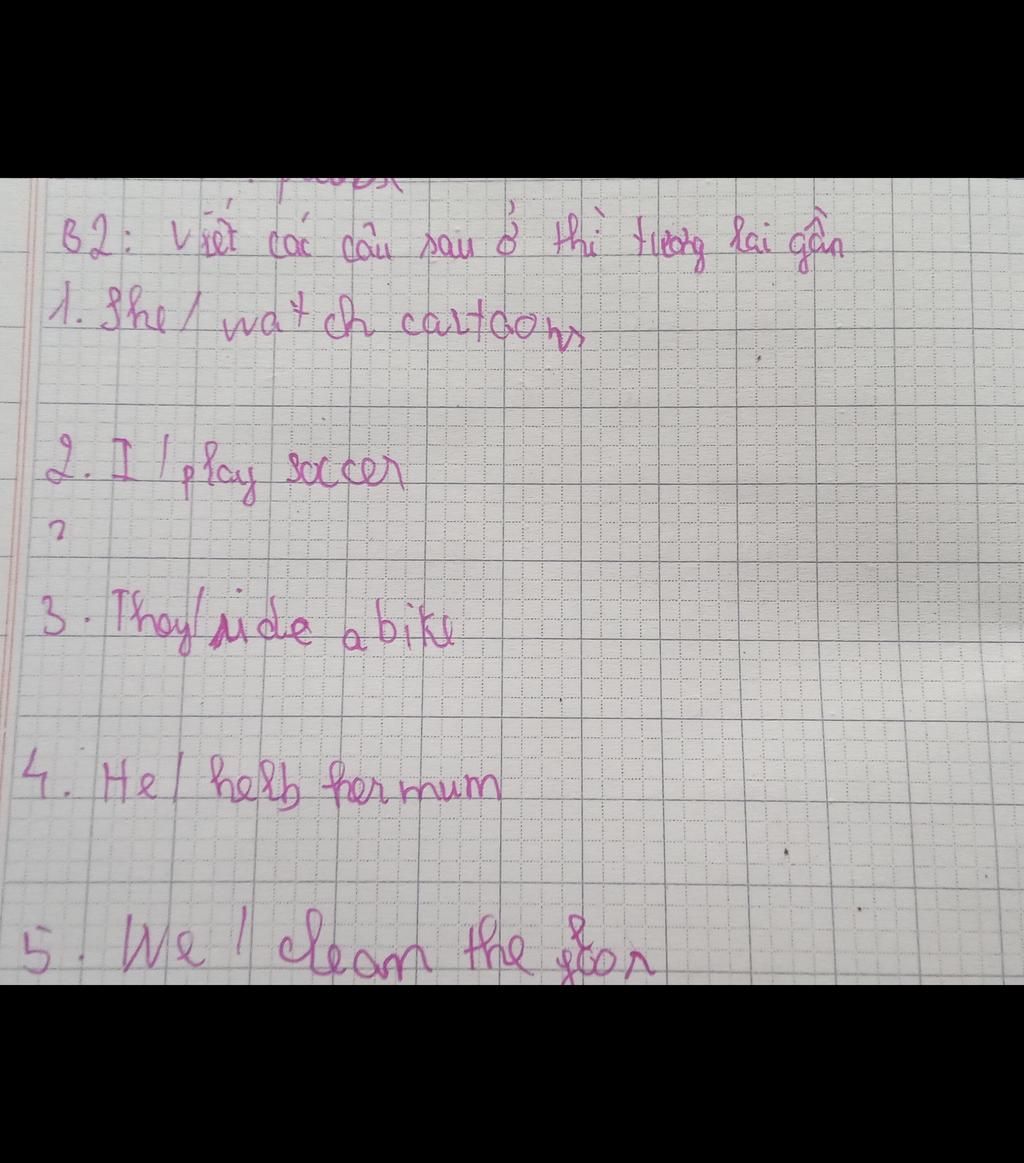 B2: Viết các câu sau ở thì tương lai gần
1. She / watch cartoons
2. I / play soccer
?
3. They / ride a bike
4. He / help her mum
5. We / clean the floor